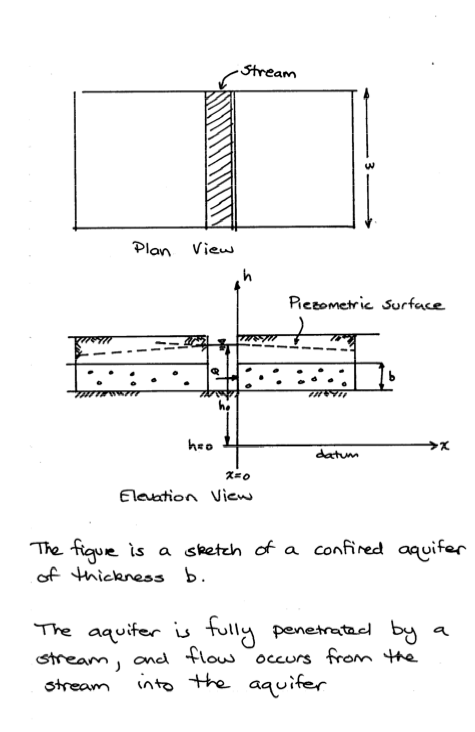 Stream
w
Plan View
h
Piezometric Surface
Q
b
h₀
h=0
x
datum
x=0
Elevation View
The figure is a sketch of a confined aquifer
of thickness b.
The aquifer is fully penetrated by a
stream, and flow occurs from the
stream into the aquifer